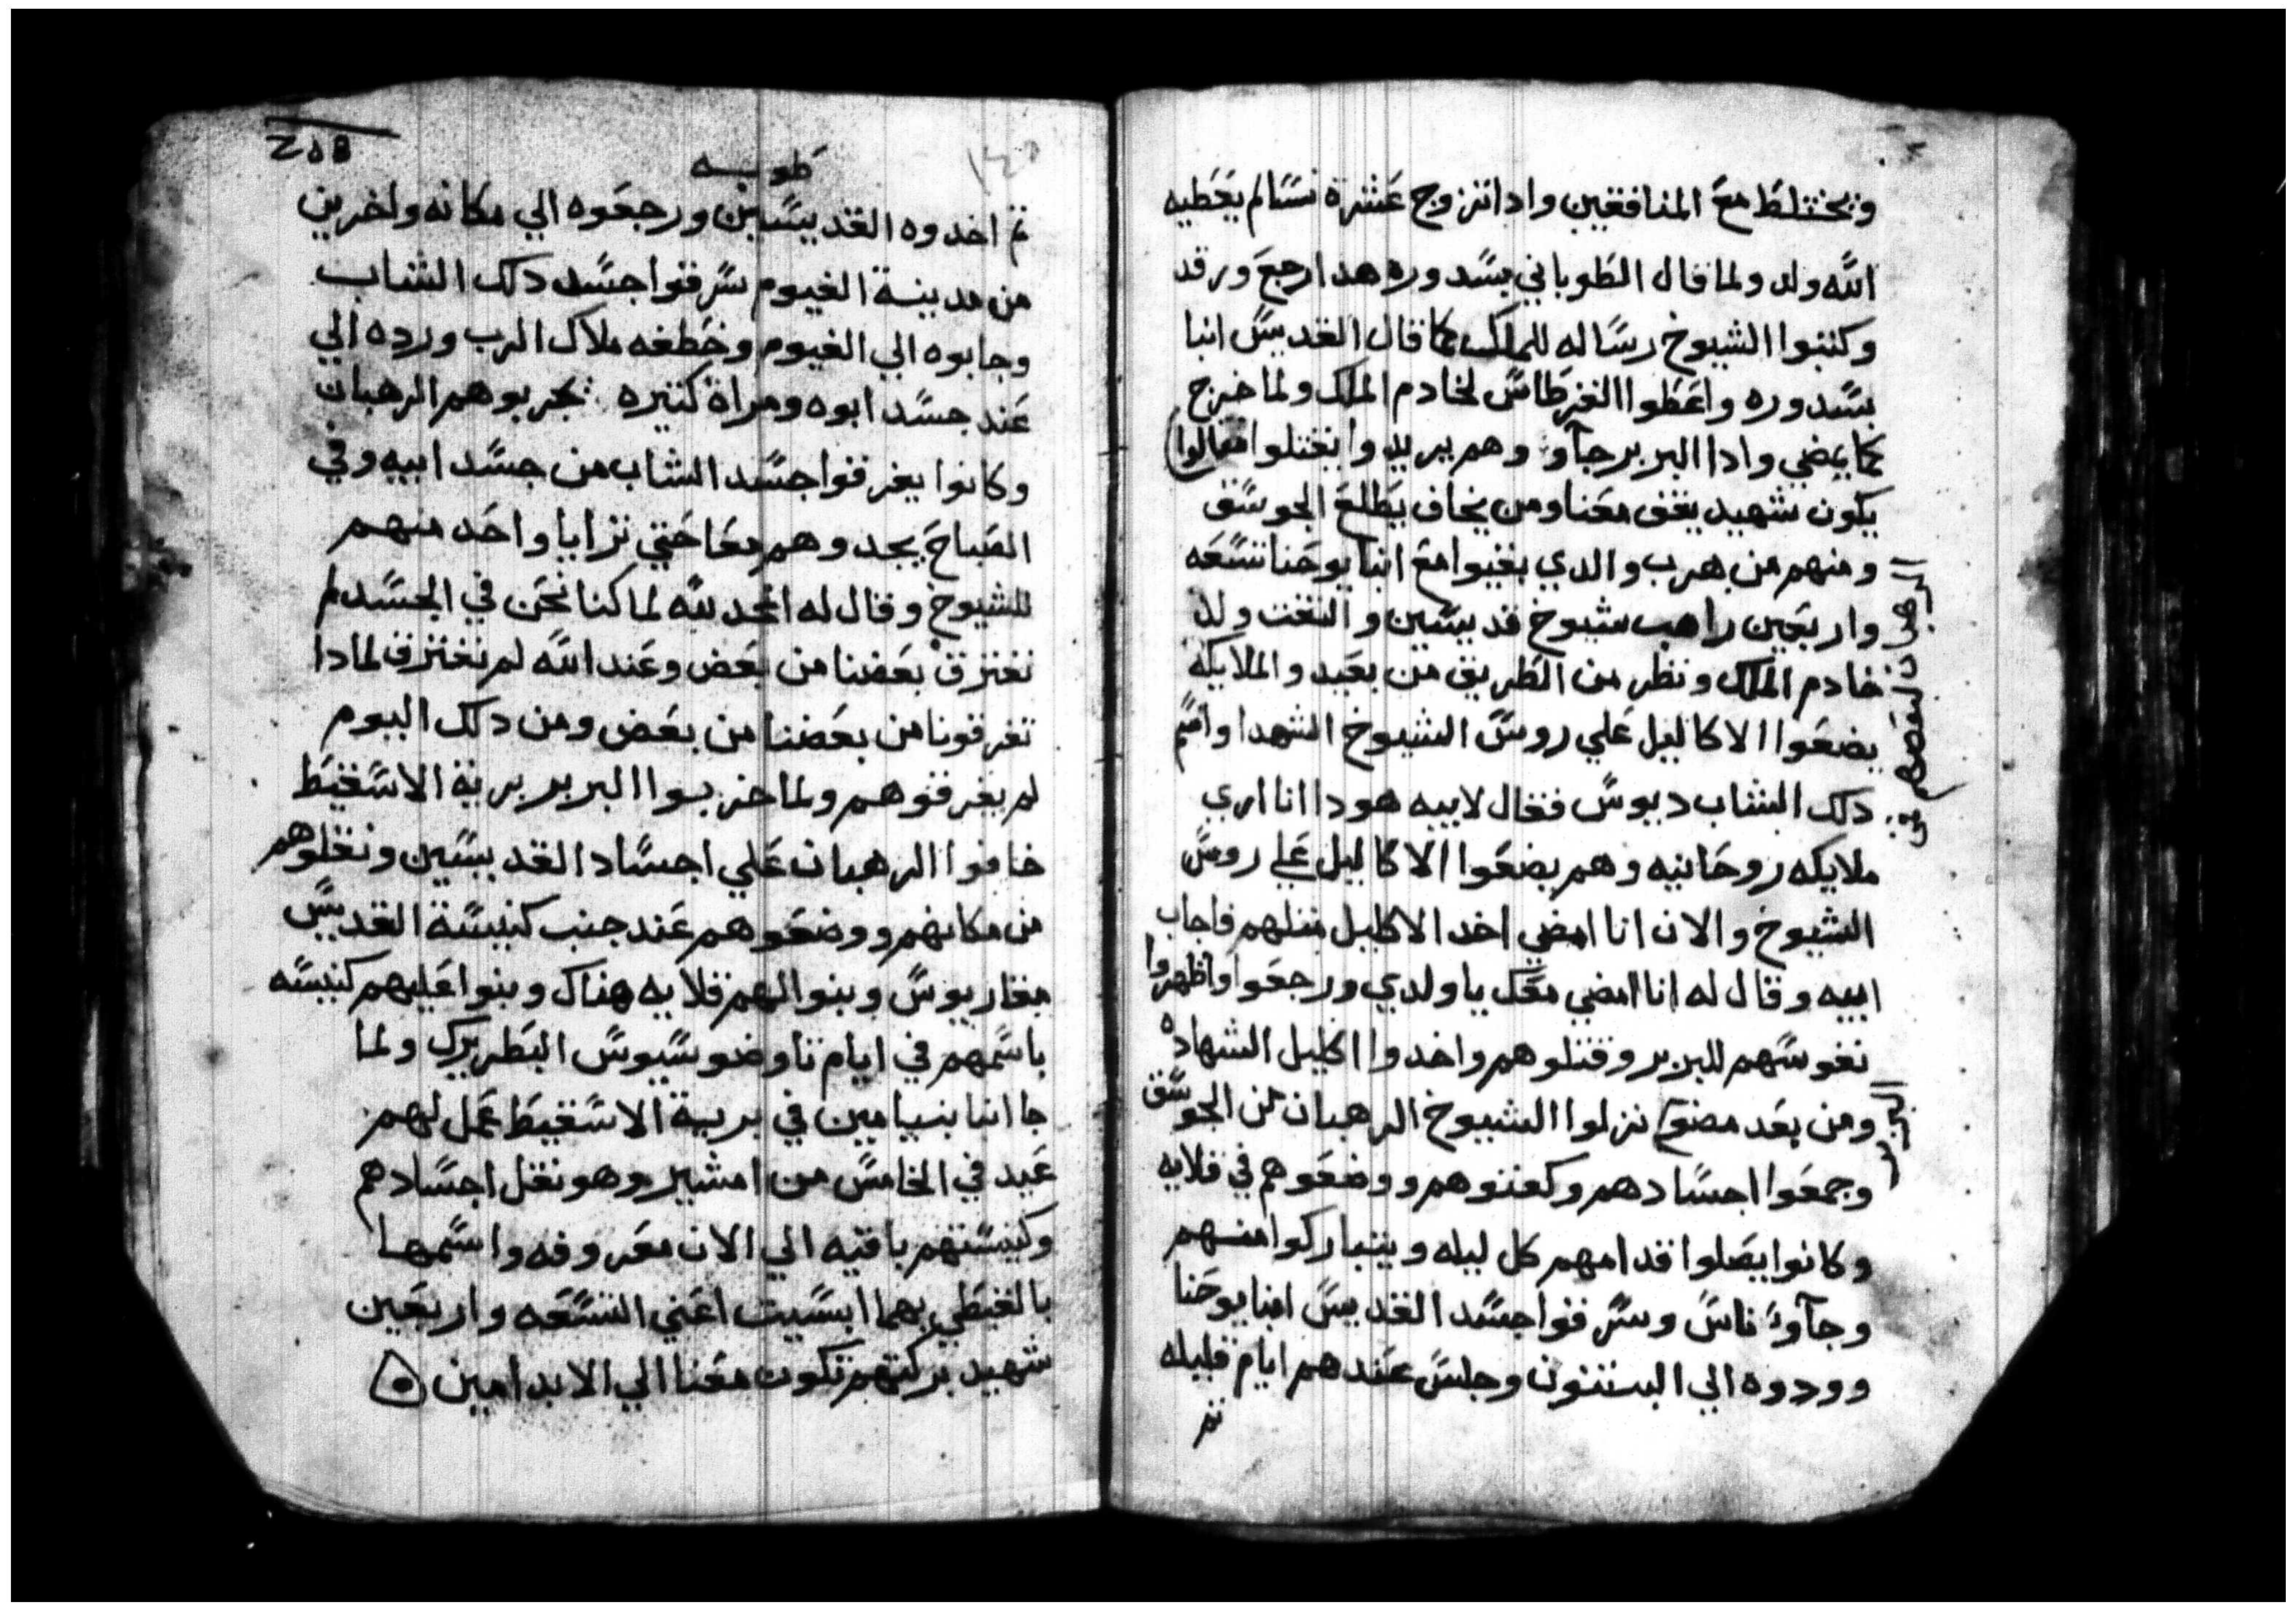 ويختلط مع المنافقين وادا تزوج عشرة نسا لم يعطيه
الله ولد ولما قال الطوباني بسدوره هدا رجع ورقد
وكتبوا الشيوخ رساله للملك كما قال القديس انبا
بسدوره واعطوا القرطاس لخادم الملك ولما خرج
كما يمضي وادا البربر جآو وهم يريدوا يقتلوا فقالوا
يكون شهيد يقف معنا ومن يخاف يطلع الجوسق
ومنهم من هرب والدي بقيوا مع انبا يوحنا تسعه
واربعين راهب شيوخ قديسين والتفت ولد
خادم الملك ونظر من الطريق من بعيد والملايكه
يضعوا الاكاليل علي روس الشيوخ الشهدا واسم
دلك الشاب ديوس فقال لابيه هودا انا اري
ملايكه روحانيه وهم يضعوا الاكاليل علي روس
الشيوخ والان انا امضي اخد الاكليل متلهم فاجاب
ابيه وقال له انا امضي معك يا ولدي ورجعوا واظهروا
نفوسهم للبربر وقتلوهم واخدوا اكليل الشهاده
ومن بعد مضو نزلوا الشيوخ الرهبان من الجوسق
وجمعوا اجسادهم وكفنوهم ووضعوهم في قلايه
وكانوا يصلوا قدامهم كل ليله ويتباركوا منهم
وجآو ناس وسرقوا جسد القديس انبا يوحنا
وودوه الي البتنون وجلس عندهم ايام قليله
تم
طوبه
١٤٠
تم اخدوه القديسين ورجعوه الي مكانه واخرين
من مدينة الفيوم سرقوا جسد دلك الشاب
وجابوه الي الفيوم وخطفه ملاك الرب ورده الي
عند جسد ابوه ومراة كتيره يجربوهم الرهبان
وكانوا يفرقوا جسد الشاب من جسد ابيه وفي
الصباح يجدوهم معا حتي ترايا واحد منهم
للشيوخ وقال له الحمد لله لما كنا نحن في الجسد لم
نفترق بعضنا من بعض وعند الله لم نفترق لمادا
تفرقونا من بعضنا من بعض ومن دلك اليوم
لم يفرقوهم ولما خربوا البربر برية الاسقيط
خافوا الرهبان علي اجساد القديسين ونقلوهم
من مكانهم ووضعوهم عند جنب كنيسة القديس
مقاريوس وبنوا لهم قلايه هناك وبنوا عليهم كنيسه
باسمهم في ايام تاوضوسيوس البطريرك ولما
جا انبا بنيامين في برية الاسقيط عمل لهم
عيد في الخامس من امشير وهو نقل اجسادهم
وكنيستهم باقيه الي الان معروفه واسمها
بالقبطي بهما ابسيت اعني التسعه واربعين
شهيد بركتهم تكون معنا الي الابد امين